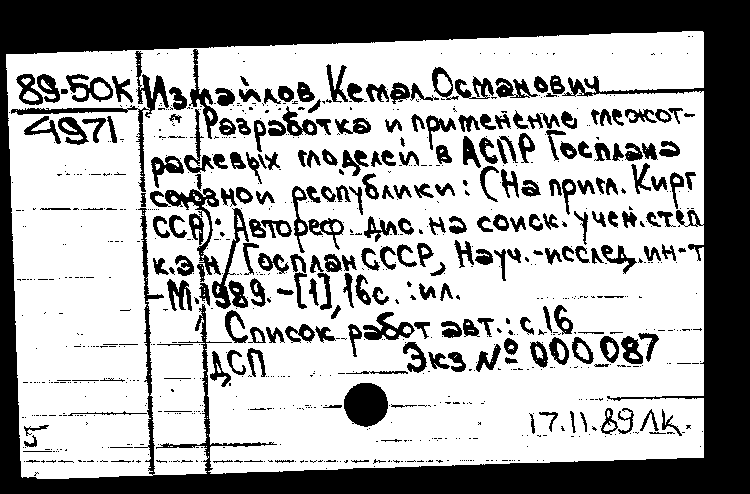 89-50К Измайлов, Кемал Османович
4971 Разработка и применение межот-
раслевых моделей в АСПР Госплана
союзной республики: (На прим. Кирг
ССР): Автореф. дис. на соиск. учен. степ
к.э.н/Госплан СССР, Науч.-исслед. ин-т
-М. 1989. -[1], 16с. :ил.
Список работ авт.: с.16
ДСП Экз № 000087
17.11.89 ЛК.
5